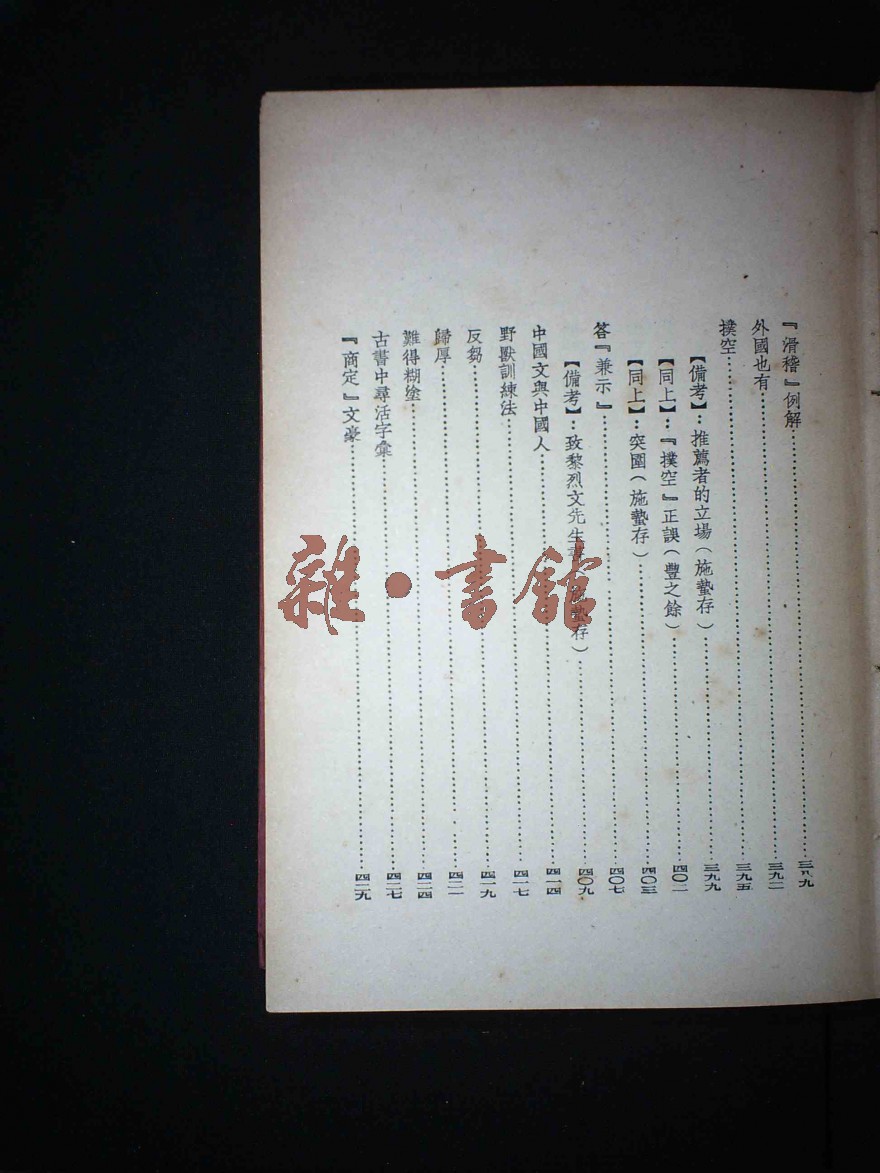 『滑稽』例解……三八九
外國也有……三九二
撲空……三九五
【備考】：推薦者的立場（施蟄存）……三九九
【同上】：『撲空』正誤（豐之餘）……四〇二
【同上】：突圍（施蟄存）……四〇三
答『兼示』……四〇七
【備考】：致黎烈文先生書（施蟄存）……四〇九
中國文與中國人……四一四
野獸訓練法……四一七
反芻……四一九
歸厚……四二一
難得糊塗……四二四
古書中尋活字彙……四二七
『商定』文豪……四二九
雜·書館